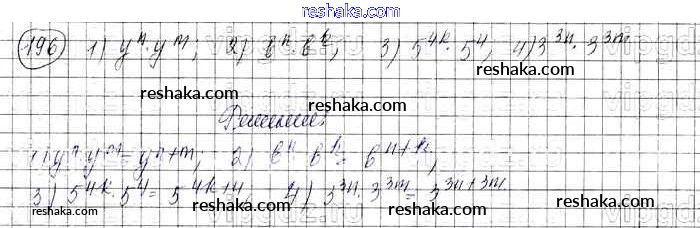 reshaka.com
196 1) yⁿ·yᵐ; 2) bⁿ·bᵏ; 3) 5⁴ᵏ·5⁴; 4) 3³ⁿ·3³ᵐ
reshaka.com reshaka.com reshaka.com
Решение:
reshaka.com reshaka.com
1) yⁿ·yᵐ=yⁿ⁺ᵐ; 2) bⁿ bᵏ=bⁿ⁺ᵏ;
3) 5⁴ᵏ·5⁴=5⁴ᵏ⁺⁴ 4) 3³ⁿ·3³ᵐ=3³ⁿ⁺³ᵐ
reshaka.com reshaka.com reshaka.com
reshaka.com